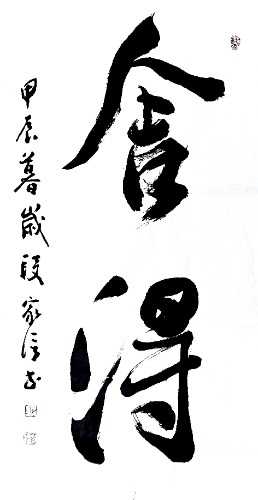 舍得
甲辰暮歲段家信书